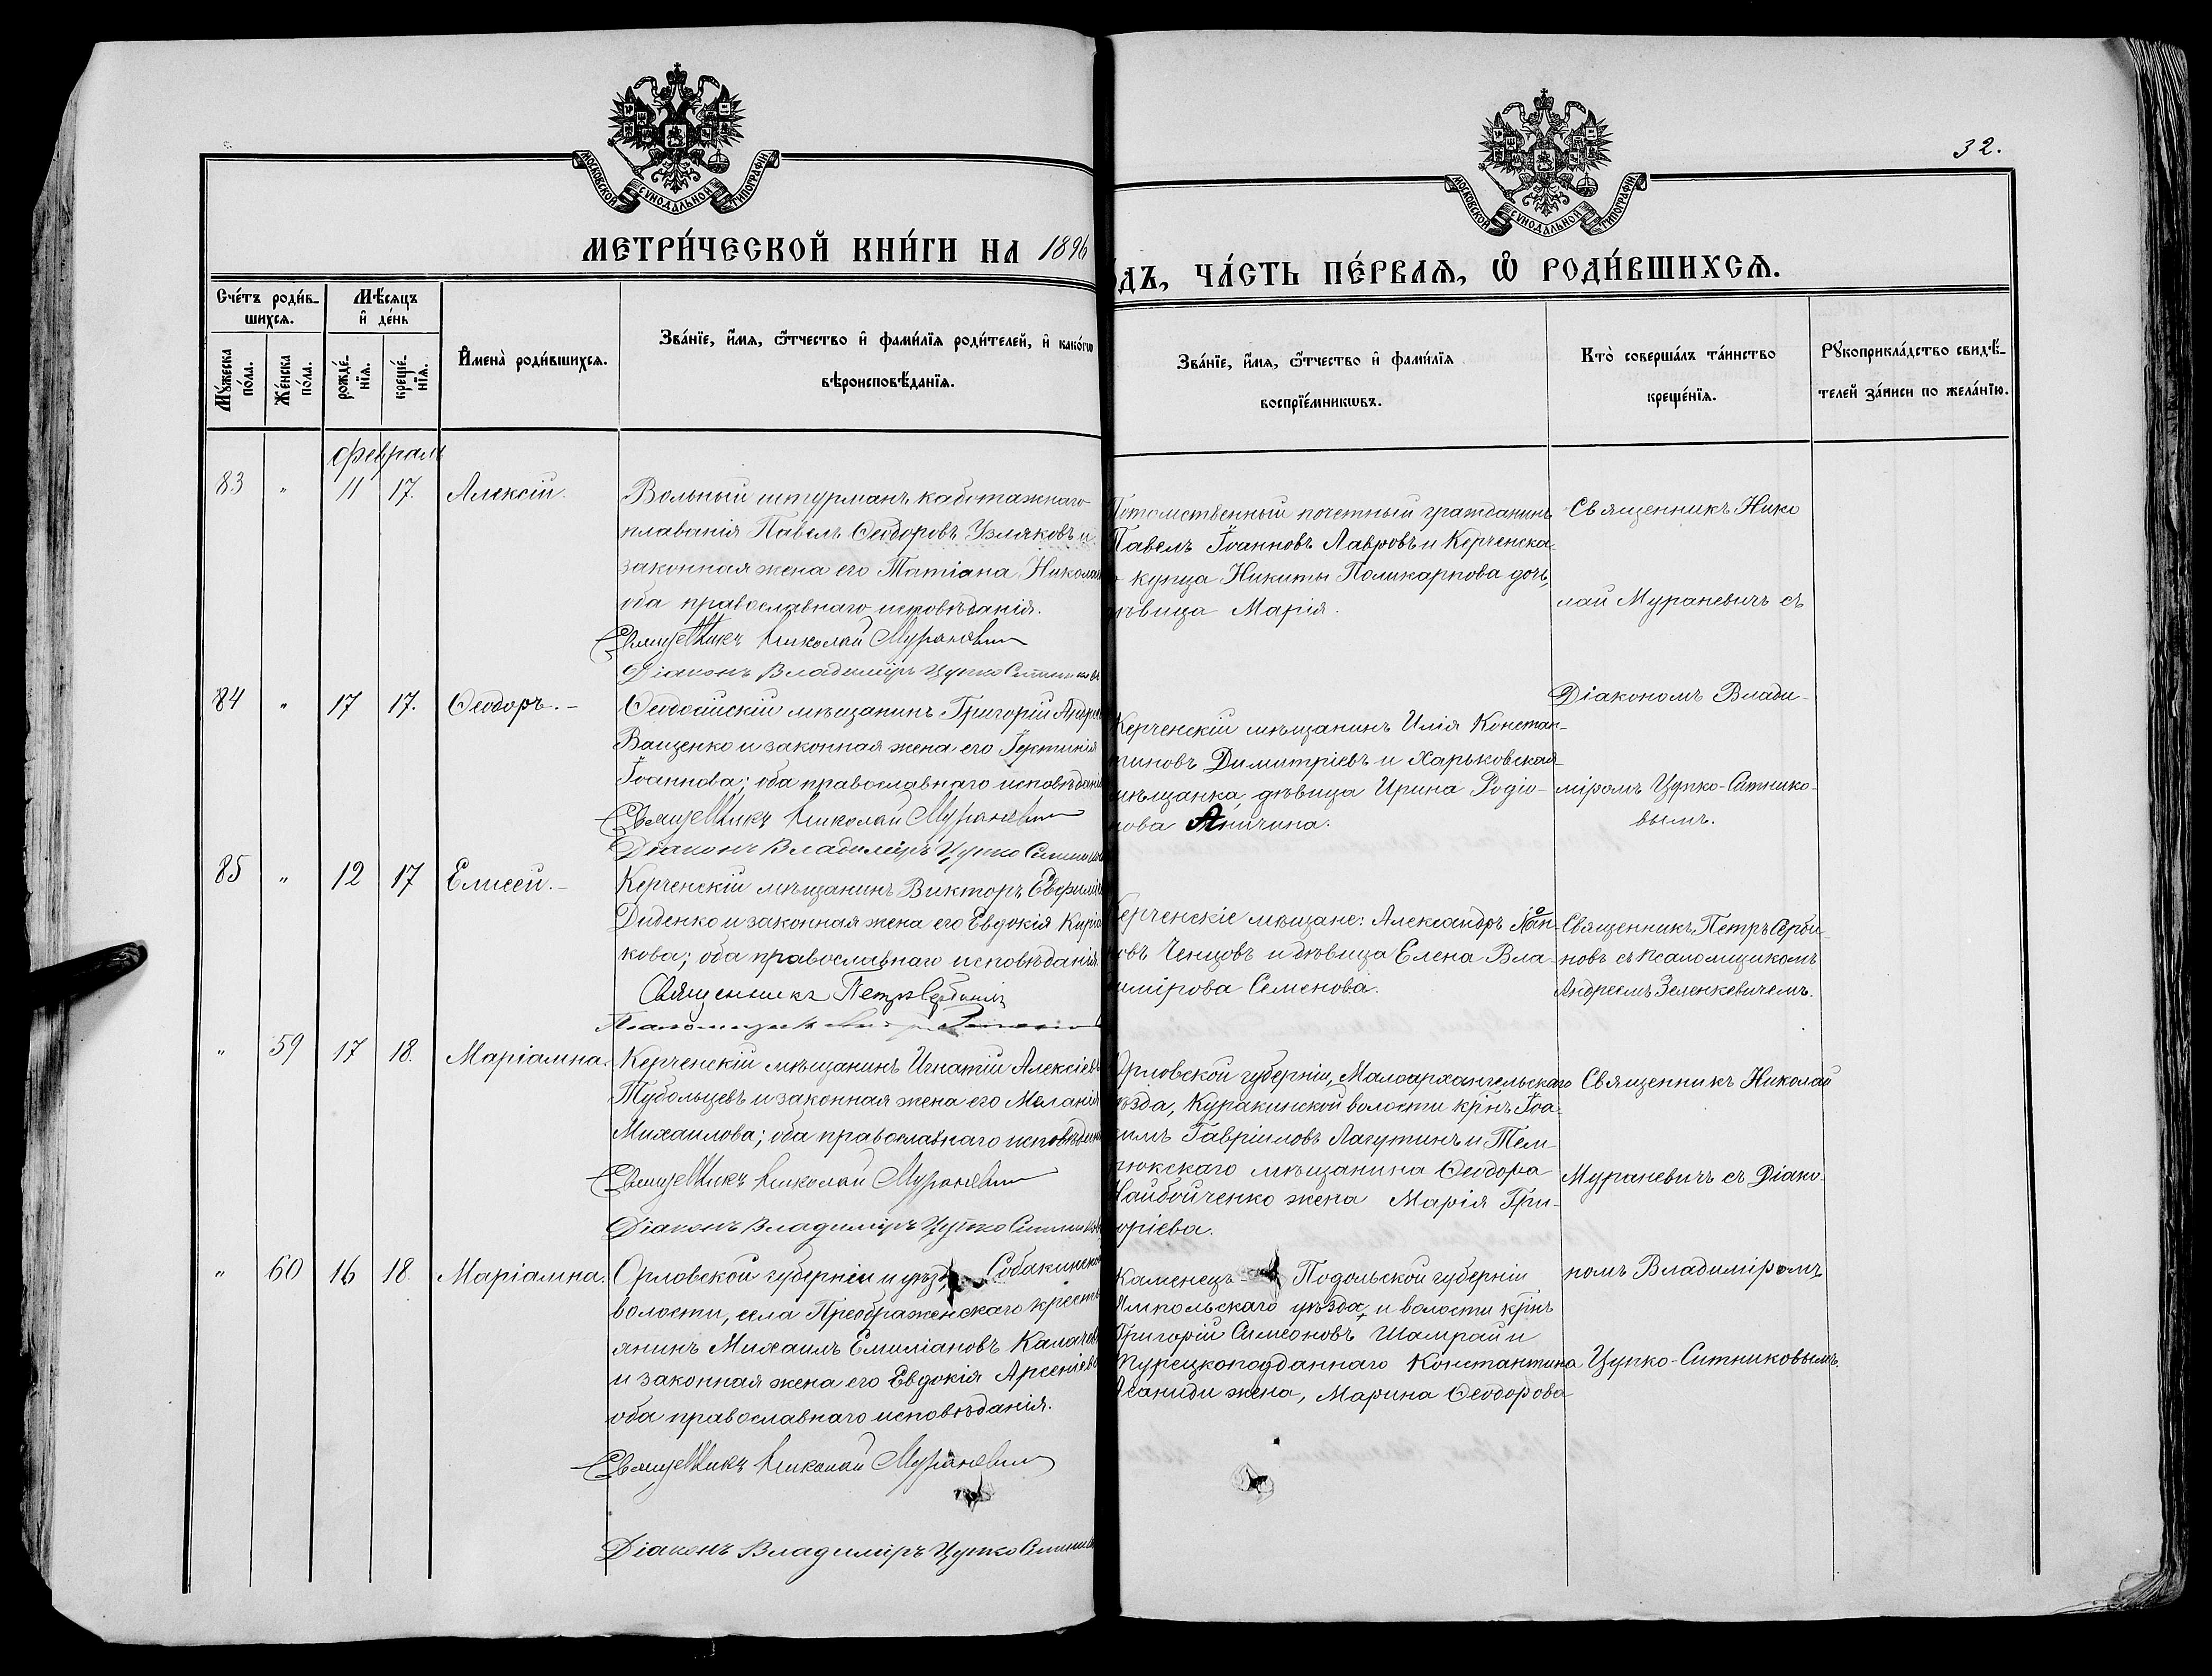 32.
МОСКОВСКОЙ СѴНОДАЛЬНОЙ ТИПОГРАФІИ
МОСКОВСКОЙ СѴНОДАЛЬНОЙ ТИПОГРАФІИ
МЕТРИ́ЧЕСКОЙ КНИ́ГИ НА 1896
ДЪ, ЧА́СТЬ ПЕ́РВАѦ, Ѡ҆ РОДИ́ВШИХСѦ.
Сче́тъ роди́в-
шихсѧ.
Мѣ́сѧцъ
и҆ де́нь
Мꙋ́жеска по́ла.
Же́нска по́ла.
рожде́-
нїѧ.
креще́-
нїѧ.
И҆мена̀ роди́вшихсѧ.
Зва́нїе, и҆́мѧ, ѻ҆́тчество и҆ фами́лїѧ роди́телей, и҆ како́гѡ
вѣроисповѣ́данїѧ.
Зва́нїе, и҆́мѧ, ѻ҆́тчество и҆ фами́лїѧ
воспрїе́мникѡвъ.
Кто̀ соверша́лъ та́инство
креще́нїѧ.
Рꙋкоприкла́дство свидѣ́-
телей за́писи по жела́нїю.
Февраль
83 " 11 17. Алексій.
Вольный штурманъ каботажнаго
плаванія Павелъ Ѳеодоровъ Узляковъ и
законная жена его Татіана Никола
оба православнаго исповѣданія.
Священникъ Николай Мураневич
Діаконъ Владиміръ Цупко Ситников
Потомственный почетный гражданинъ
Павелъ Іоанновъ Лавровъ и Керченска-
купца Никиты Поликарпова дочь,
вица Марія.
Священникъ Нико
лай Мураневичъ съ
84 " 17 17. Ѳеодоръ.-
Ѳеодосійскій мѣщанинъ Григорій Андре
Ващенко и законная жена его Іустинія
Іоаннова; оба православнаго исповѣдан
Священникъ Николай Мураневич
Діаконъ Владиміръ Цупко Ситников
Керченскій мѣщанинъ Илія Констан-
тиновъ Димитріевъ и Харьковская
мѣщанка, дѣвица Ирина Родіо-
нова Аничина.
Діакономъ Влади-
міромъ Цупко-Ситнико-
вымъ.
85 " 12 17 Елисей.-
Керченскій мѣщанинъ Викторъ Евфимі
Диденко и законная жена его Евдокія Кирі
кова; оба православнаго исповѣданія.
Священникъ Петръ Сербинов
Псаломщикъ
Керченскіе мѣщане: Александръ Іоан-
овъ Ченцовъ и дѣвица Елена Вла-
имірова Семенова.
Священникъ Петръ Серби-
новъ съ псаломщикомъ
Андреемъ Зеленкевичемъ.
" 59 17 18. Маріамна.
Керченскій мѣщанинъ Игнатій Алексіев
Тубольцевъ и законная жена его Меланія
Михаилова; оба православнаго исповѣдан
Священникъ Николай Мураневич
Діаконъ Владиміръ Цупко Ситников
Орловской губерніи, Малоархангельскаго
ѣзда, Куракинской волости крнъ Іоа-
кимъ Гавріиловъ Лагутинъ и Тем-
рюкскаго мѣщанина Ѳеодора
Найбойченко жена Марія Гри-
горіева.
Священникъ Николай
Мураневичъ съ Діако-
" 60 16 18. Маріамна.
Орловской губерніи и уѣзда, Собакинско
волости, села Преображенскаго кресть
янинъ Михаилъ Емиліановъ Калачев
и законная жена его Евдокія Арсеніева
оба православнаго исповѣданія.
Священникъ Николай Мураневич
Діаконъ Владиміръ Цупко Ситников
Каменецъ-Подольской губерніи
Ямпольскаго уѣзда, и волости крнъ
Григорій Симеоновъ Шамрай и
турецкоподданнаго Константина
Асаниди жена, Марина Ѳеодорова
номъ Владиміромъ
Цупко-Ситниковымъ.